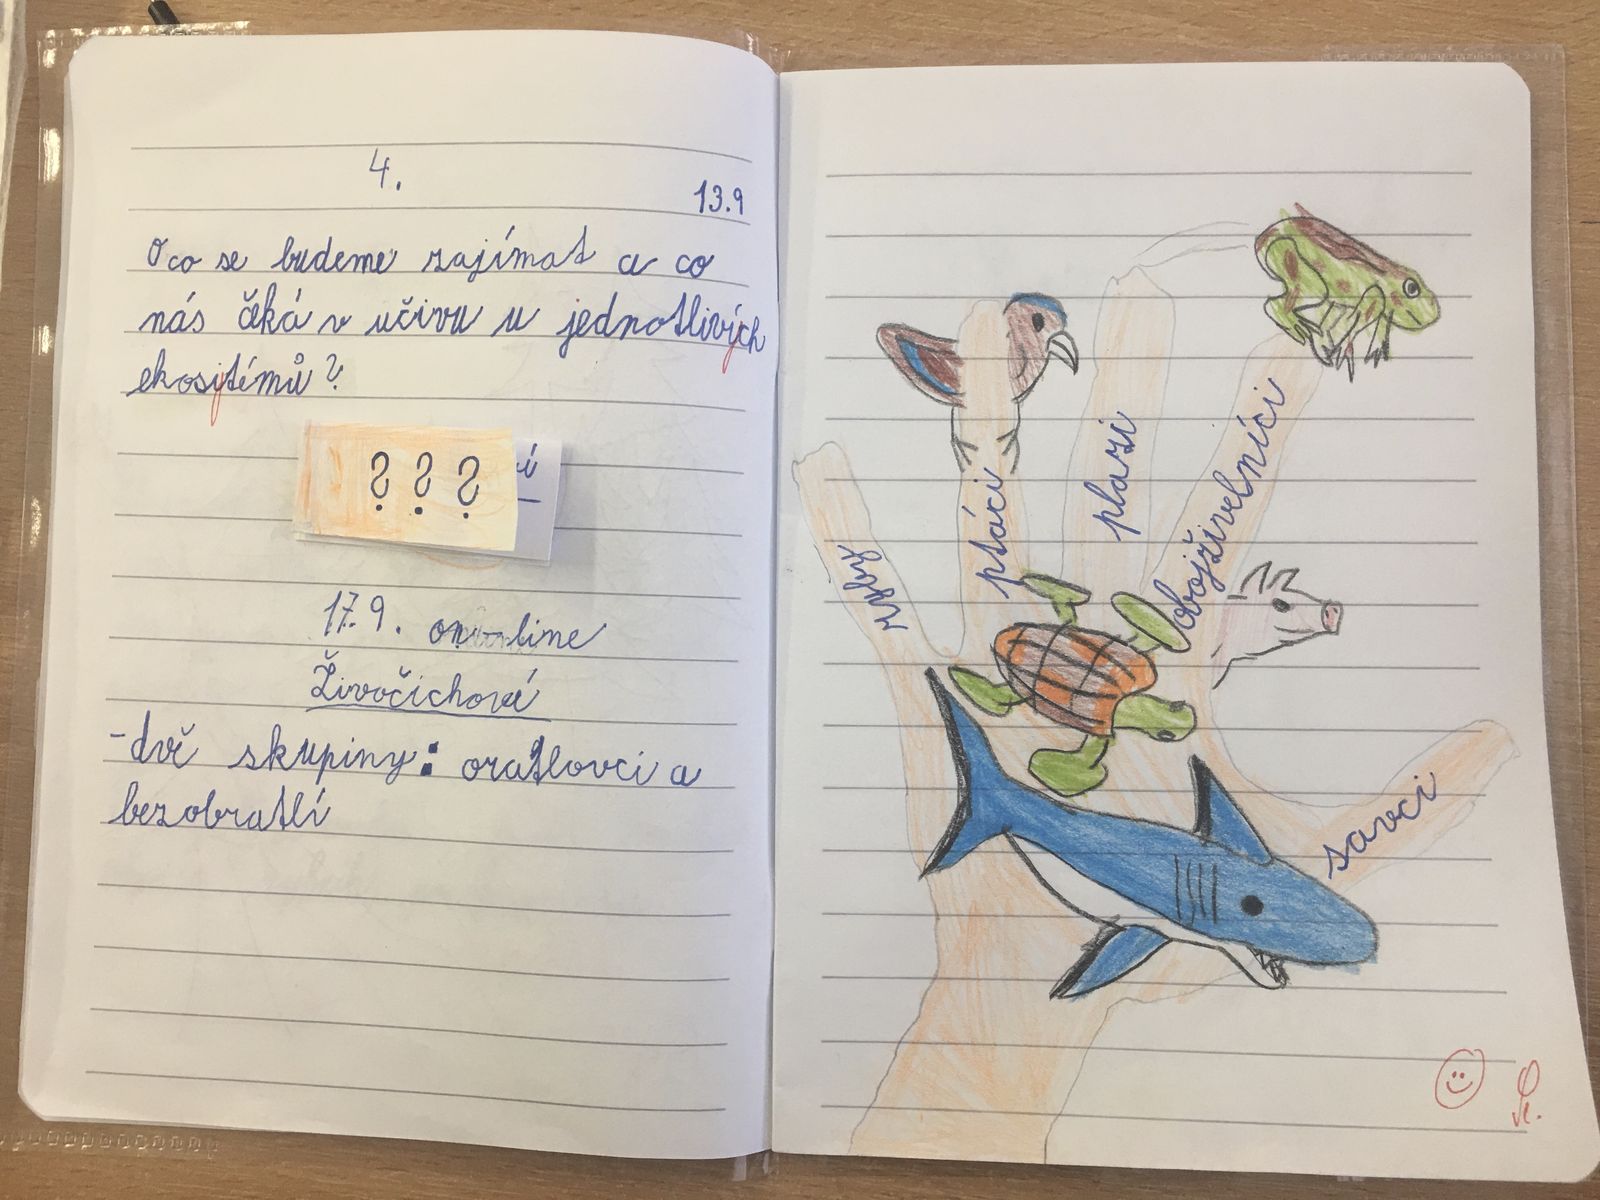 4.
13.9
O co se budeme zajímat a co
nás čeká v učivu u jednotlivých
ekosytémů?
? ? ?
í
17.9. on-line
Živočichové
-dvě skupiny: oratlovci a
bezobratlí
ryby
ptáci
plazi
obojživelníci
savci